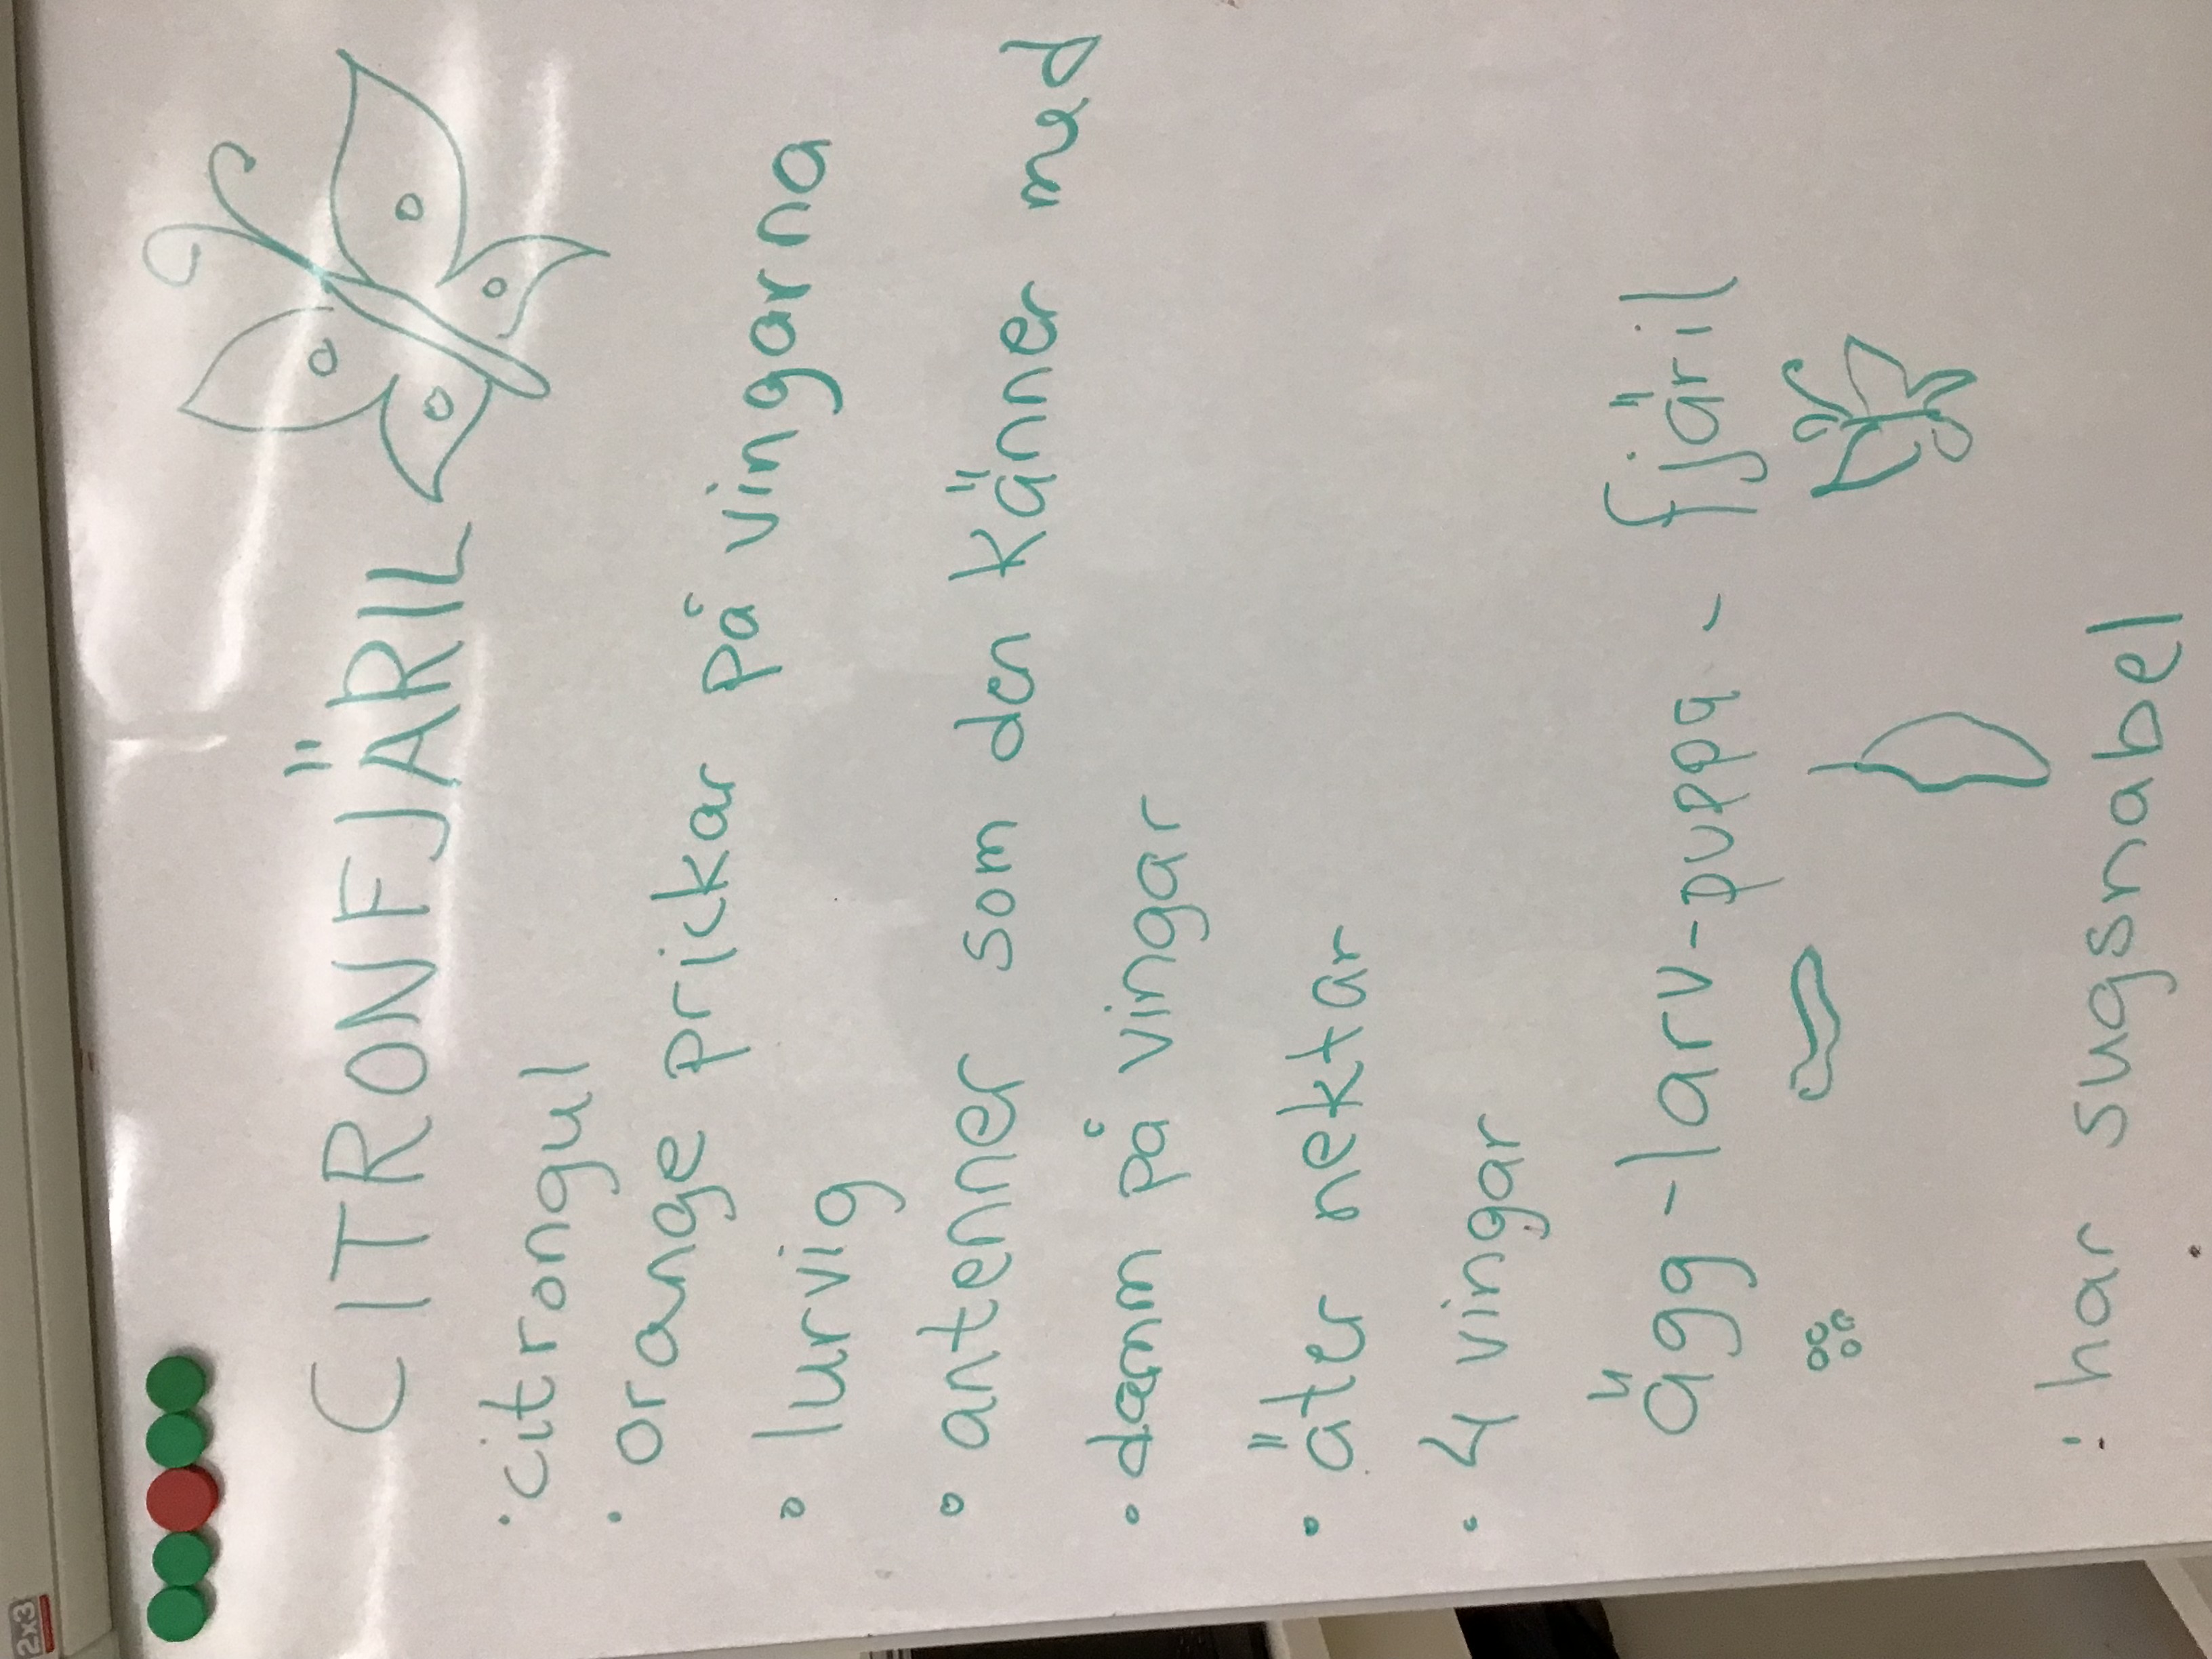 2x3
CITRONFJÄRIL
• citrongul
• orange prickar på vingarna
• lurvig
• antenner som den känner med
• damm på vingar
• äter nektar
• 4 vingar
ägg - larv - puppa - fjäril
: har sugsnabel